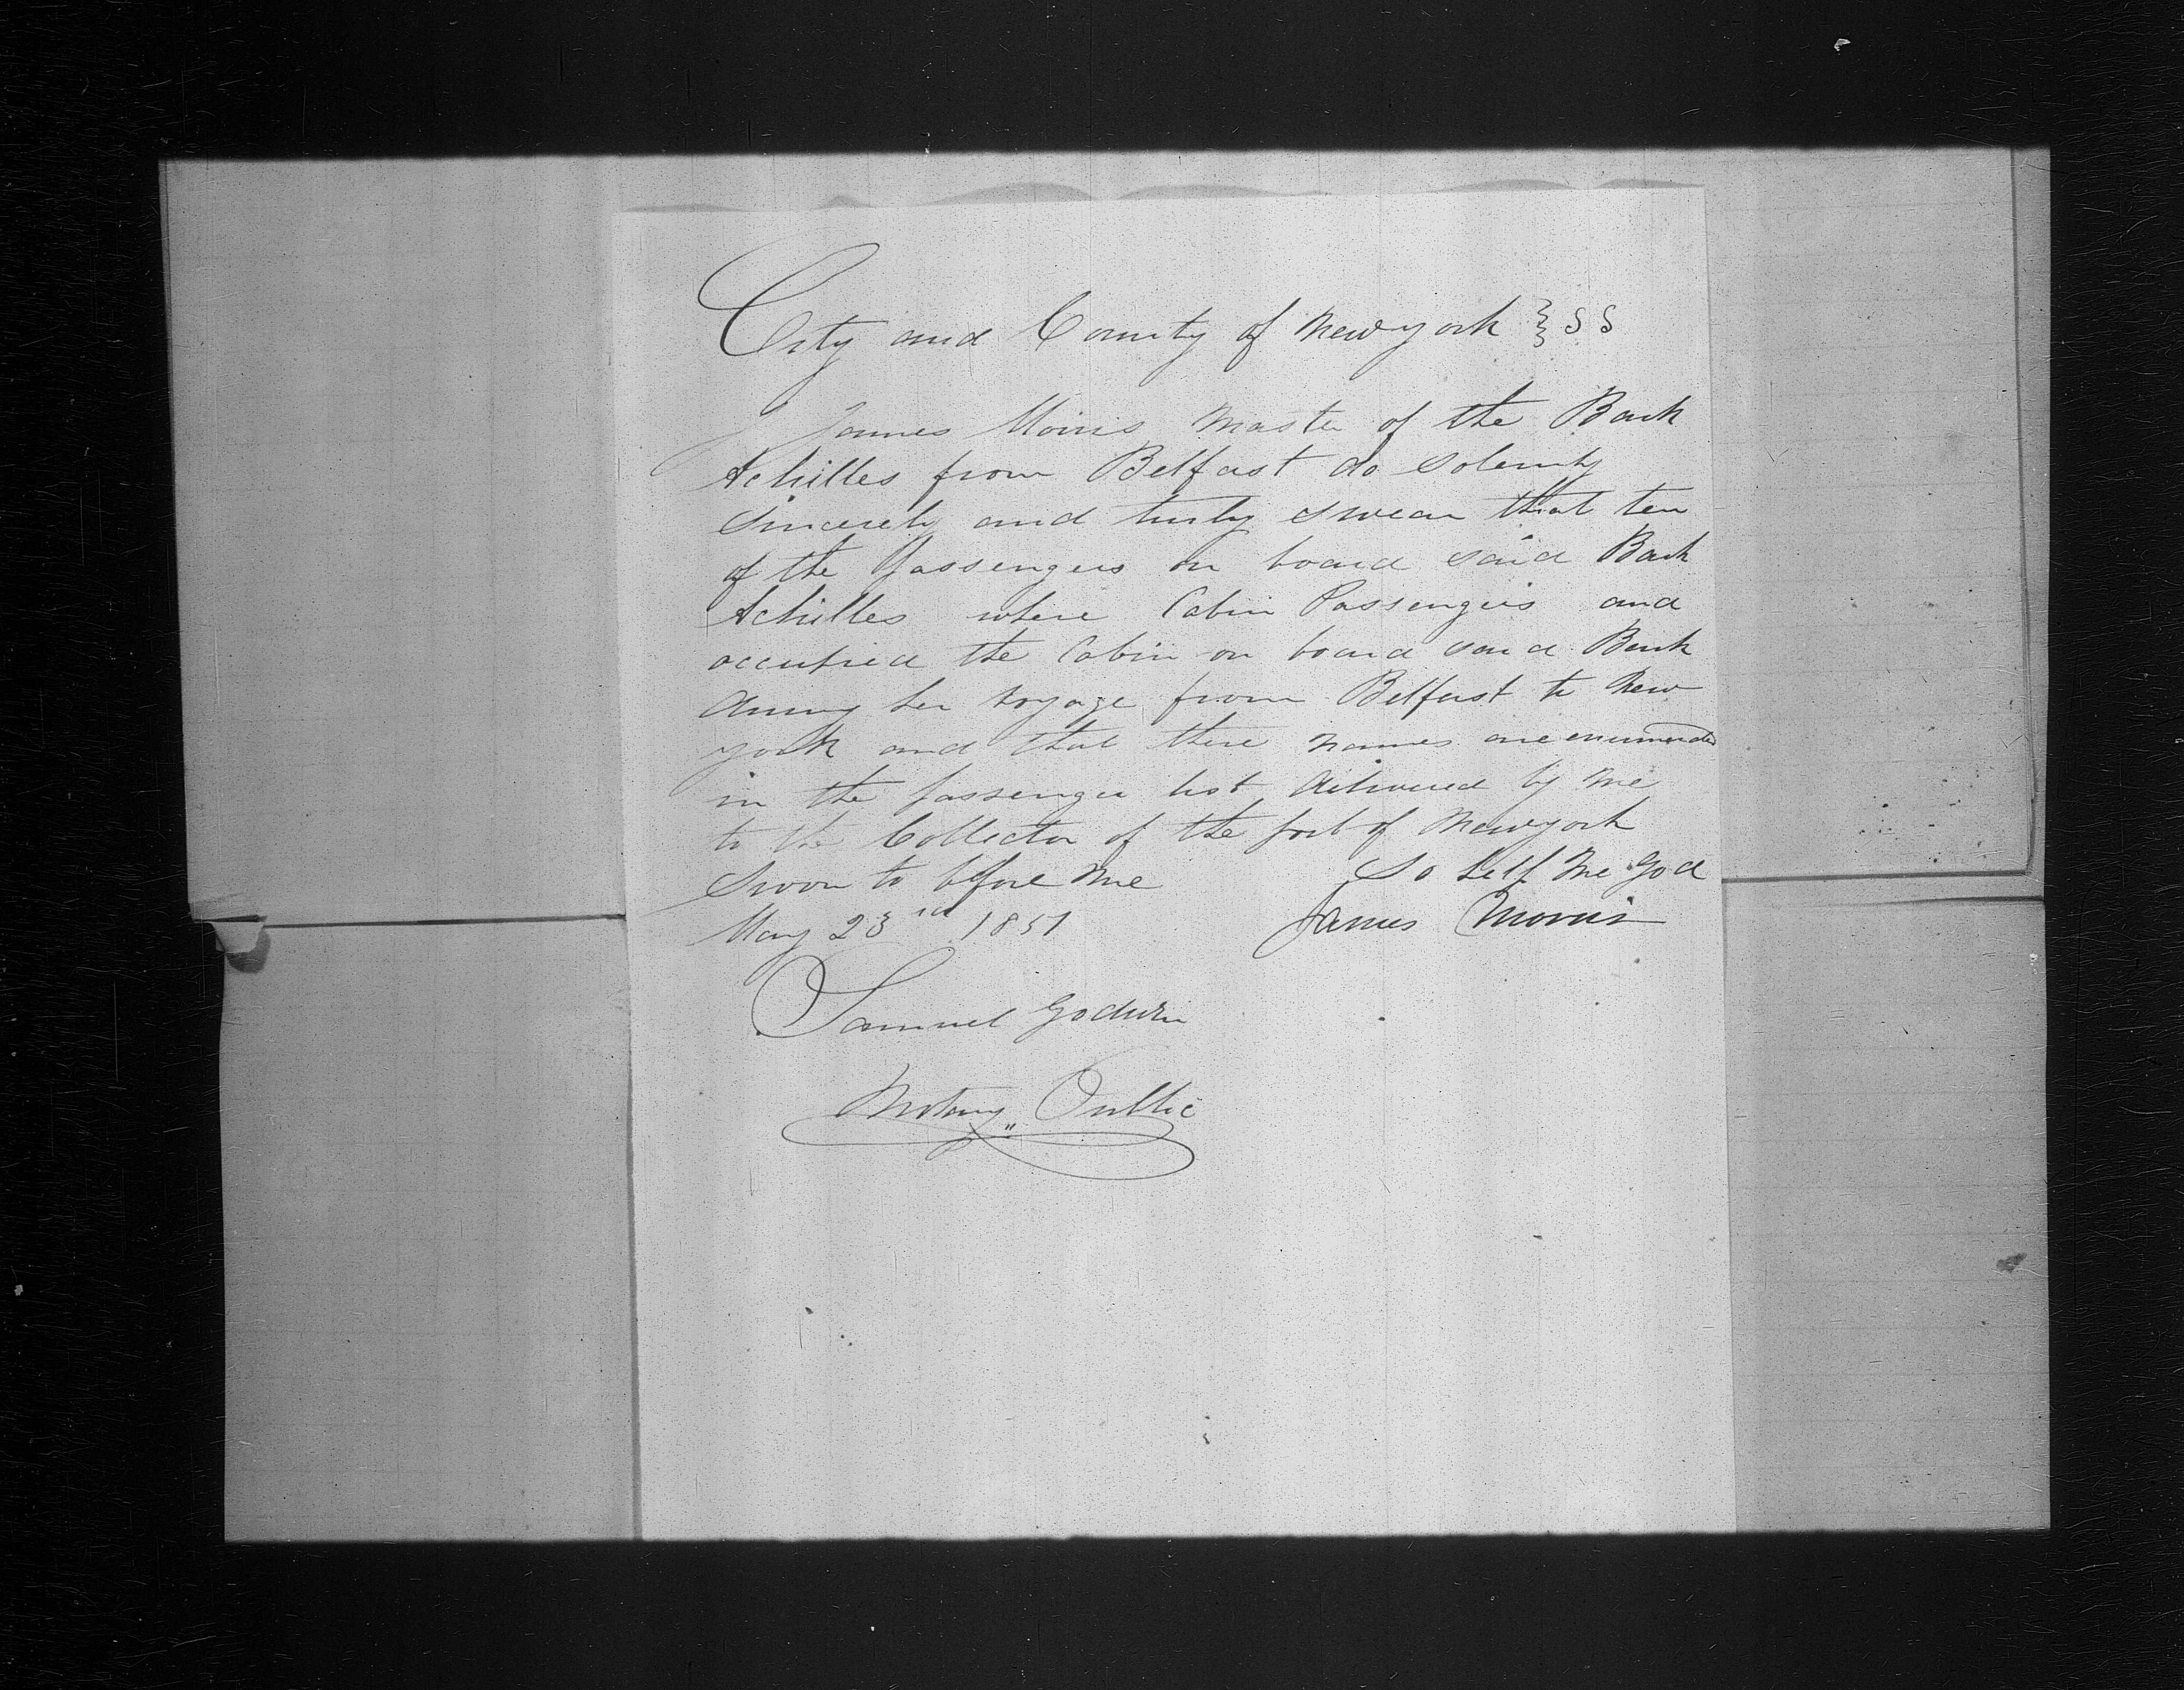 City and County of New york } SS
I James Morris Master of the Bark
Achilles from Belfast do solemnly
sincerely and truly swear that ten
of the passengers on board said Bark
Achilles where Cabin Passengers and
occupied the Cabin on board said Bark
during her voyage from Belfast to New
york and that there names are enumerated
in the passenger list delivered by me
to the Collector of the port of New york
Sworn to before me So help me God
May 23rd 1851 James Morris
Samuel Godwin
Notary Public